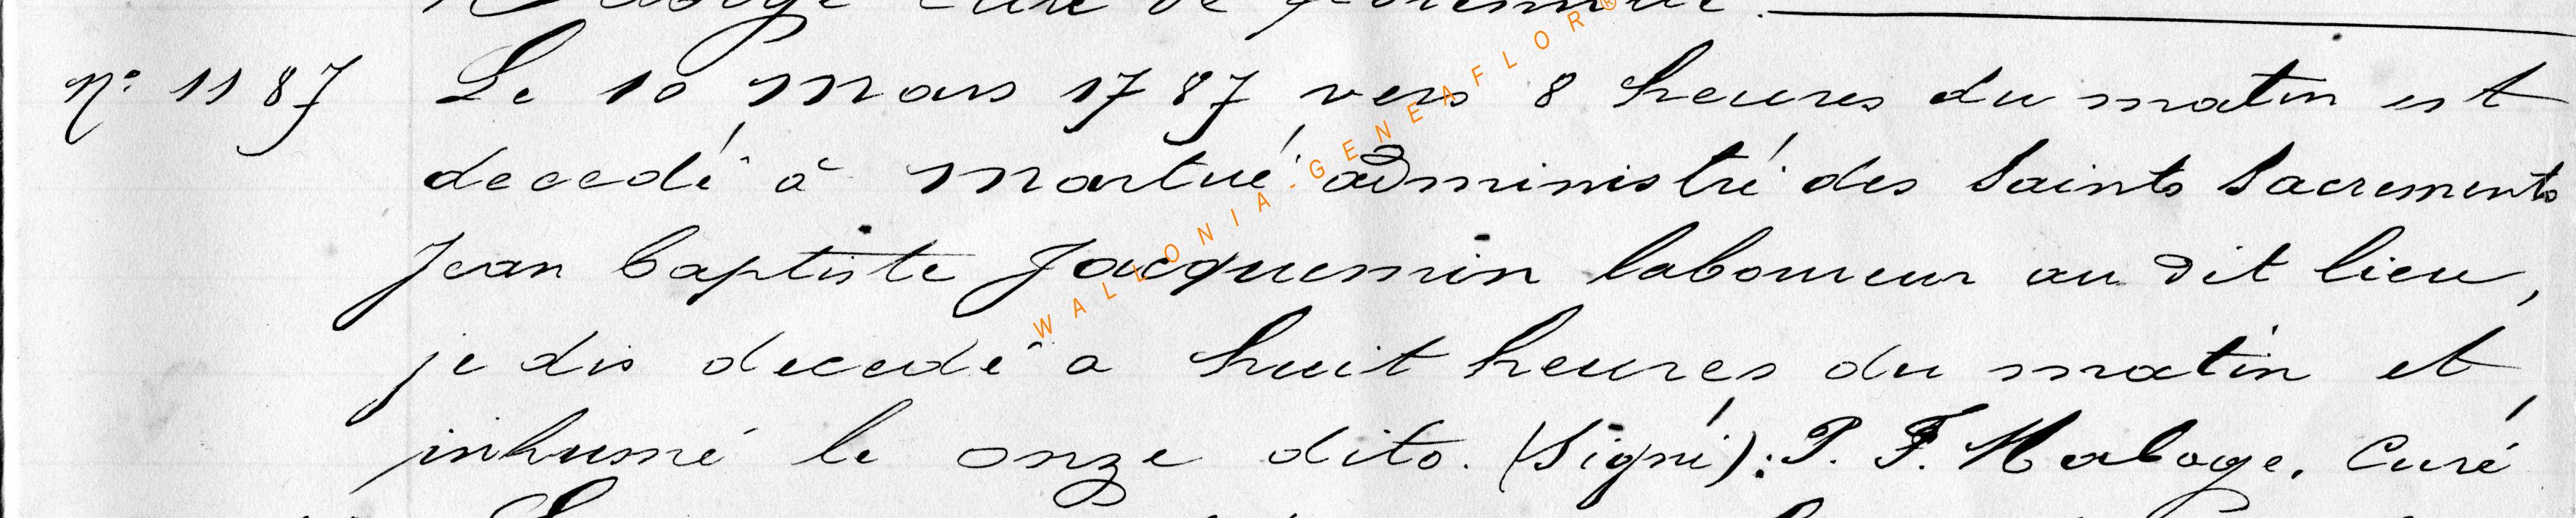 N° 1187 Le 10 Mars 1787 vers 8 heures du matin est
decedé à Martué administré des Saints Sacrements
Jean baptiste Jacquemin laboureur au dit lieu,
je dis decedé a huit heures du matin et
inhumé le onze dito. (Signé): P. F. Maloge. Curé
WALLONIA.GENEAFLOR